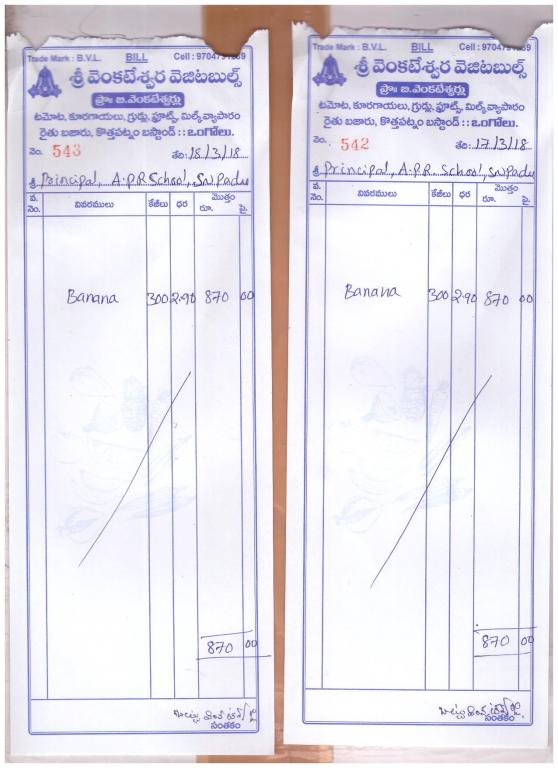 Trade Mark : B.V.L. BILL Cell : 9704
శ్రీ వెంకటేశ్వర వెజిటబుల్స్
ప్రొః బి.వెంకటేశ్వర్లు
టమోట, కూరగాయలు, గ్రుడ్లు, ఫ్రూట్స్, మిల్క్ వ్యాపారం
రైతు బజారు, కొత్తపట్నం బస్టాండ్ : : ఒంగోలు.
నెం. 543 తేది: 18/3/18
శ్రీ Principal, A.P.R School, S.N.Padu
వ. నెం. వివరములు కేజీలు ధర మొత్తం రూ. పై.
Banana 300 2.90 870 00
870 00
సంతకం
Trade Mark : B.V.L. BILL Cell : 9704
శ్రీ వెంకటేశ్వర వెజిటబుల్స్
ప్రొః బి.వెంకటేశ్వర్లు
టమోట, కూరగాయలు, గ్రుడ్లు, ఫ్రూట్స్, మిల్క్ వ్యాపారం
రైతు బజారు, కొత్తపట్నం బస్టాండ్ : : ఒంగోలు.
నెం. 542 తేది: 17/3/18
శ్రీ Principal, A.P.R. School, S.N.Padu
వ. నెం. వివరములు కేజీలు ధర మొత్తం రూ. పై.
Banana 300 2.90 870 00
870 00
సంతకం